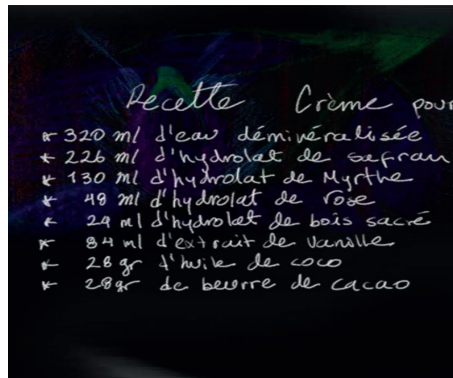 Recette Crème pour
* 320 ml d'eau déminéralisée
* 226 ml d'hydrolat de safran
* 130 ml d'hydrolat de Myrthe
* 48 ml d'hydrolat de rose
* 24 ml d'hydrolat de bois sacré
* 84 ml d'extrait de vanille
* 28 gr d'huile de coco
* 28 gr de beurre de cacao